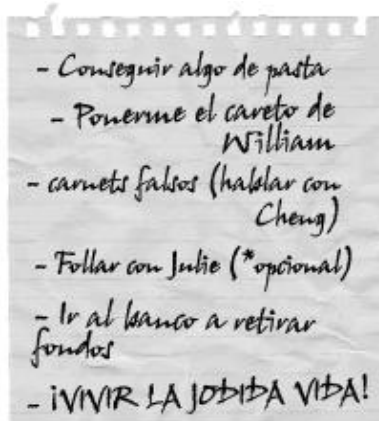 - Conseguir algo de pasta
- Ponerme el careto de
William
- carnets falsos (hablar con
Cheng)
- Follar con Julie (*opcional)
- Ir al banco a retirar
fondos
- ¡VIVIR LA JODIDA VIDA!